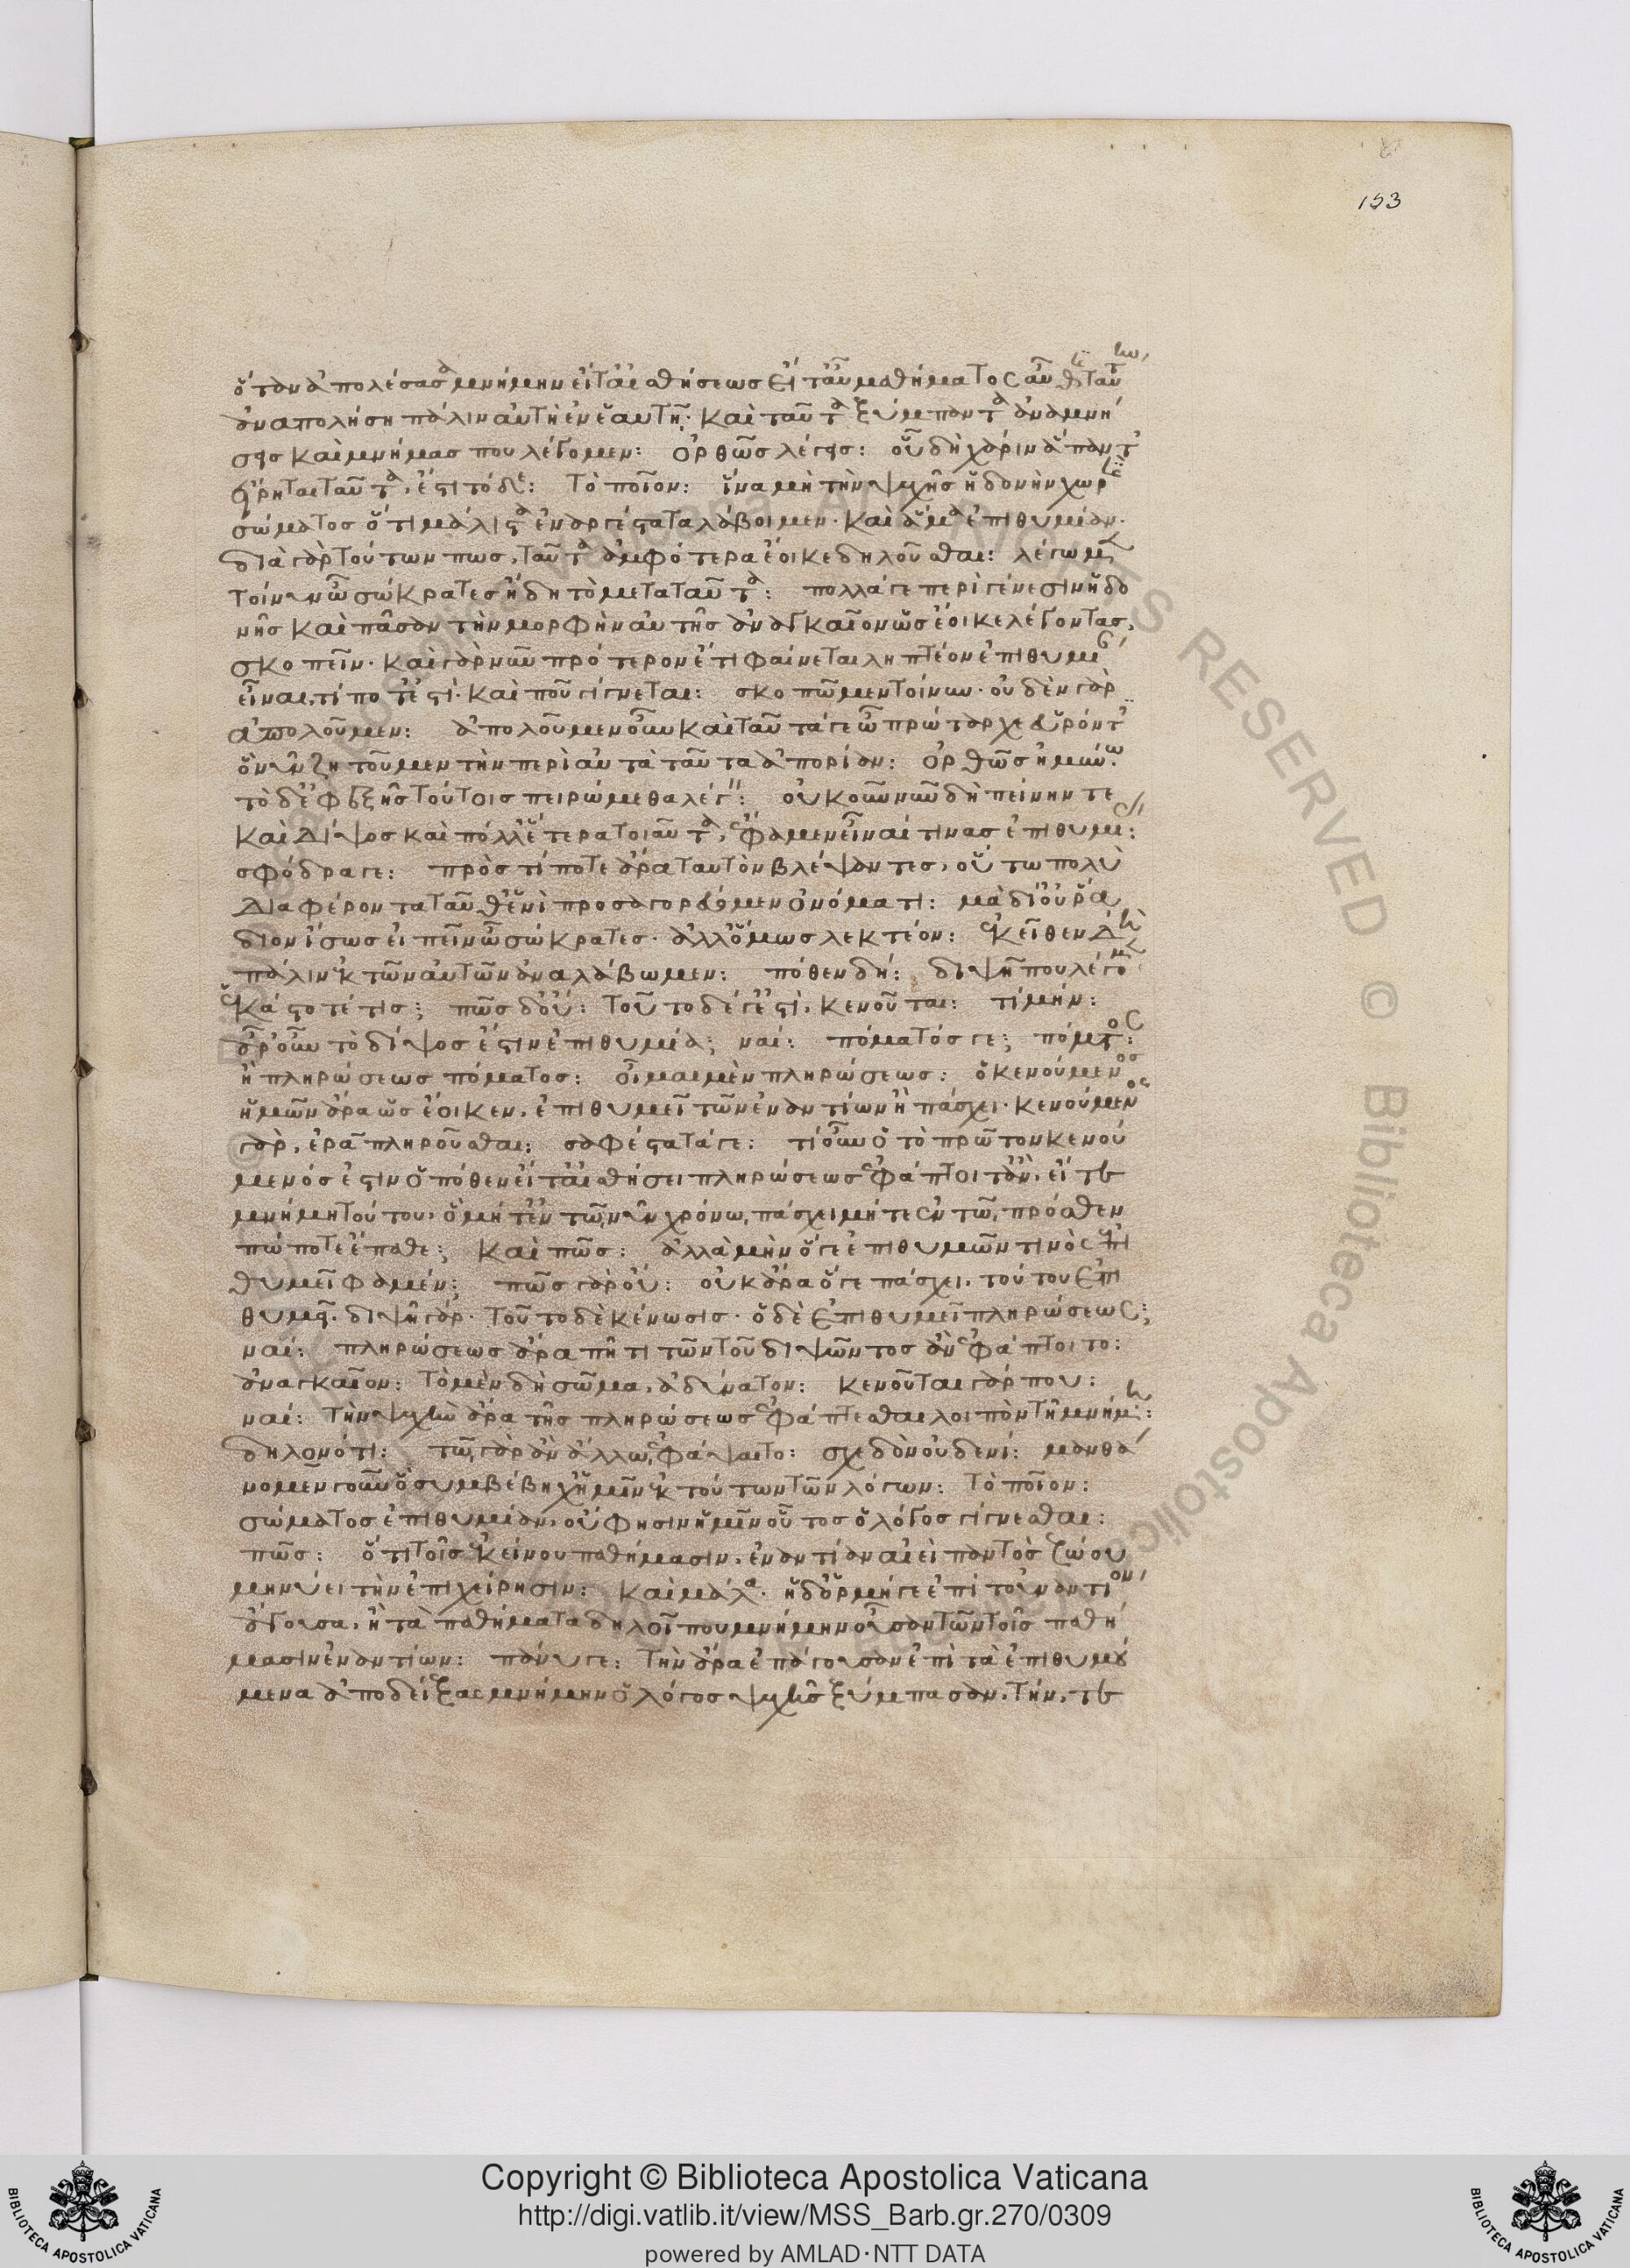 153
ὅταν ἀπολέσασα μνήμην εἴτ' αἰσθήσεως εἴτ' αὖ μαθήματος αὖθις ταύτην
ἀναπολήσῃ πάλιν αὐτὴ ἐν ἑαυτῇ· καὶ ταῦτα ξύμπαντα ἀναμνή
σεις καὶ μνήμας που λέγομεν: ὀρθῶς λέγεις: οὗ δὴ χάριν ἅπαντ'
εἴρηται ταῦτα, ἔστι τόδε: τὸ ποῖον: ἵνα μὴ τὴν ψυχῆς ἡδονὴν χωρὶς
σώματος ὅτι μάλιστα ἐναργέστατα λάβοιμεν· καὶ ἅμα ἐπιθυμίαν·
διὰ γὰρ τούτων πως, ταῦτα ἀμφότερα ἔοικε δηλοῦσθαι: λέγωμεν
τοίνυν ὦ σώκρατες ἤδη τὸ μετὰ ταῦτα: πολλά γε περὶ γένεσιν ἡδο
νῆς καὶ πᾶσαν τὴν μορφὴν αὐτῆς ἀναγκαῖον ὡς ἔοικε λέγοντας,
σκοπεῖν· καὶ γὰρ νῦν πρότερον ἔτι φαίνεται ληπτέον ἐπιθυμίαν
εἶναι, τί ποτ' ἐστὶ· καὶ ποῦ γίγνεται: σκοπῶμεν τοίνυν· οὐδὲν γὰρ
ἀπολοῦμεν: ἀπολοῦμεν οὖν καὶ ταῦτά γε ὦ πρώταρχε εὑρόντες
ὃ νῦν ζητοῦμεν τὴν περὶ αὐτὰ ταῦτα ἀπορίαν: ὀρθῶς ἠμύνω·
τὸ δ' ἐφεξῆς τούτοις πειρώμεθα λέγειν: οὐκοῦν νῦν δὴ πείνην τε
καὶ δίψος καὶ πόλλ' ἕτερα τοιαῦτα, ἔφαμεν εἶναί τινας ἐπιθυμίας:
σφόδρα γε: πρὸς τί ποτε ἄρα ταυτὸν βλέψαντες, οὕτω πολὺ
διαφέροντα ταῦθ' ἑνὶ προσαγορεύομεν ὀνόματι: μὰ δί' οὐ ῥά
διον ἴσως εἰπεῖν ὦ σώκρατες· ἀλλ' ὅμως λεκτέον: ἐκεῖθεν δὴ
πάλιν ἐκ τῶν αὐτῶν ἀναλάβωμεν: πόθεν δή: διψῇ που λέγομεν
ἑκάστοτέ τις; πῶς δ' οὔ: τοῦτο δέ γ' ἐστὶ, κενοῦται: τί μήν:
ἆρ' οὖν τὸ δίψος ἐστὶν ἐπιθυμία; ναί: πόματός γε; πόματος:
ἢ πληρώσεως πόματος: οἶμαι μὲν πληρώσεως: ὁ κενούμενος
ἡμῶν ἄρα ὡς ἔοικεν, ἐπιθυμεῖ τῶν ἐναντίων ἢ πάσχει· κενούμενος
γὰρ, ἐρᾷ πληροῦσθαι: σαφέστατά γε: τί οὖν ὁ τὸ πρῶτον κενού
μενός ἐστιν ὁπόθεν εἴτ' αἰσθήσει πληρώσεως ἐφάπτοιτ' ἂν, εἴτε
μνήμῃ τούτου, ὃ μήτ' ἐν τῷ νῦν χρόνω, πάσχει μήτε ἐν τῷ, πρόσθεν
πώποτε ἔπαθε; καὶ πῶς: ἀλλὰ μὴν ὅ γε ἐπιθυμῶν τινὸς ἐπι
θυμεῖ φαμέν; πῶς γὰρ οὔ: οὐκ ἄρα ὅ γε πάσχει, τούτου ἐπι
θυμεῖ· διψῇ γάρ· τοῦτο δὲ κένωσις· ὁ δὲ ἐπιθυμεῖ πληρώσεως;
ναί: πληρώσεως ἄρα πῄ τι τῶν τοῦ διψῶντος ἂν ἐφάπτοιτο:
ἀναγκαῖον: τὸ μὲν δὴ σῶμα, ἀδύνατον: κενοῦται γάρ που:
ναί: τὴν ψυχὴν ἄρα τῆς πληρώσεως ἐφάπτεσθαι λοιπὸν τῇ μνήμῃ:
δηλονότι: τῶ, γὰρ ἂν ἄλλω, ἐφάψαιτο: σχεδὸν οὐδενί: μανθά
νομεν οὖν ὃ συμβέβηχ' ἡμῖν ἐκ τούτων τῶν λόγων: τὸ ποῖον:
σώματος ἐπιθυμίαν, οὔ φησιν ἡμῖν οὗτος ὁ λόγος γίγνεσθαι:
πῶς: ὅτι τοῖς ἐκείνου παθήμασιν, ἐναντίαν ἀεὶ παντὸς ζώου
μηνύει τὴν ἐπιχείρησιν: καὶ μάλα· ἡ δ' ὁρμή γε ἐπὶ τοὐναντίον
ἄγουσα, ἢ τὰ παθήματα δηλοῖ που μνήμην οὖσαν τῶν τοῖς παθή
μασιν ἐναντίων: πάνυ γε: τὴν ἄρα ἐπάγουσαν ἐπὶ τὰ ἐπιθυμού
μενα ἀποδείξας μνήμην ὁ λόγος ψυχῆς ξύμπασαν, τήν, τε
Copyright © Biblioteca Apostolica Vaticana
http://digi.vatlib.it/view/MSS_Barb.gr.270/0309
powered by AMLAD·NTT DATA